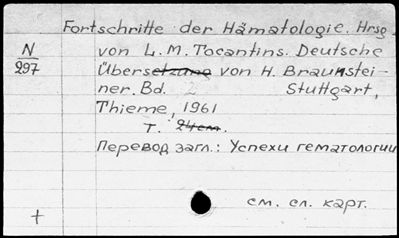 Fortschritte der Hämatologie. Hrsg.
N
297
von L. M. Tocantins. Deutsche
Übersetzung von H. Braunstei-
ner. Bd. 2 Stuttgart,
Thieme, 1961
T. 24 cm.
Перевод загл.: Успехи гематологии
см. сл. карт.